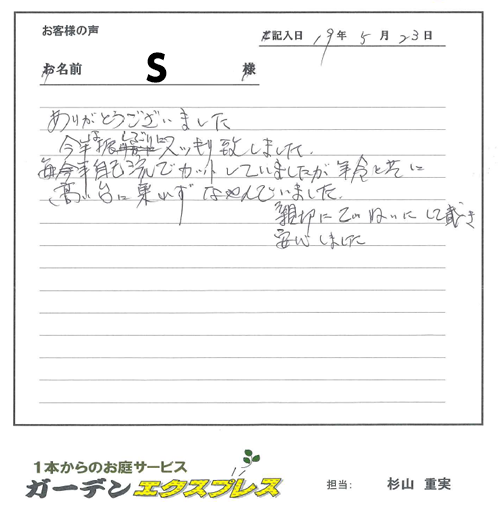 お客様の声
ご記入日 19年 5月 23日
お名前 S 様
ありがとうございました
今年は振りにスッキリ致しました.
毎年自己流でカットしていましたが年令と共に
高い台に乗れず なやんでいました.
親切にていねいにして戴き
安心しました
1本からのお庭サービス
ガーデンエクスプレス
担当: 杉山 重実